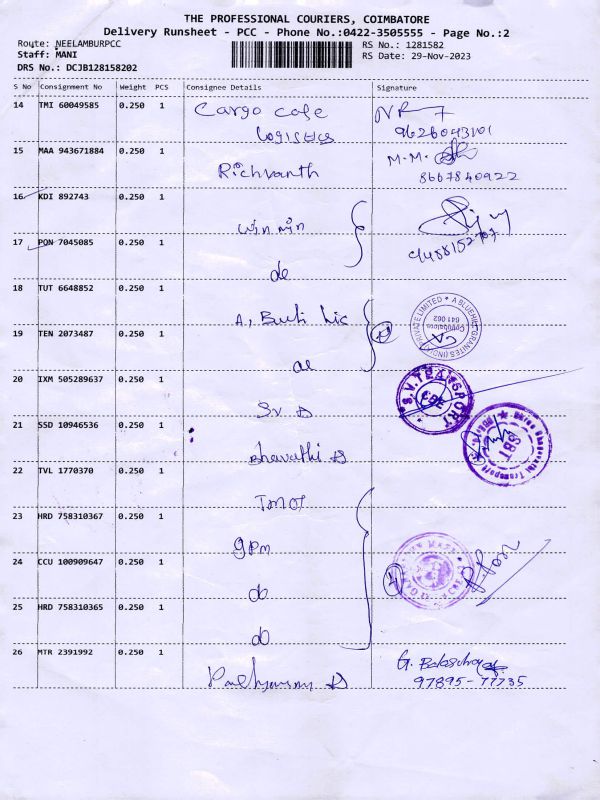 THE PROFESSIONAL COURIERS, COIMBATORE
Delivery Runsheet - PCC - Phone No.:0422-3505555 - Page No.:2
Route: NEELAMBURPCC
Staff: MANI
DRS No.: DCJB128158202
RS No.: 1281582
RS Date: 29-Nov-2023
S No Consignment No Weight PCS Consignee Details Signature
14 TMI 60049585 0.250 1 Cargo cafe
Logistics
9626043101
15 MAA 943671884 0.250 1 Richvanth M.M.
8667840922
16 KDI 892743 0.250 1 win win
17 PON 7045085 0.250 1 do
18 TUT 6648852 0.250 1
19 TEN 2073487 0.250 1
A BLUEPRINT GRANITES (INDIA) PRIVATE LIMITED
Coimbatore
641 062
20 IXM 505289637 0.250 1
S.V. TRANSPORT
21 SSD 10946536 0.250 1 Bharathi
22 TVL 1770370 0.250 1
23 HRD 758310367 0.250 1 gpm
24 CCU 100909647 0.250 1 do
25 HRD 758310365 0.250 1 do
26 MTR 2391992 0.250 1
97895-77735